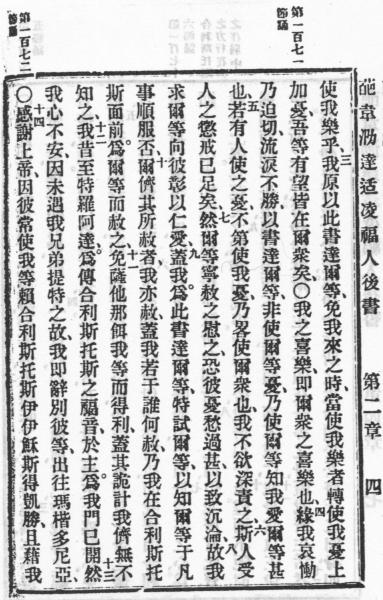 葩韋泐達适凌福人後書 第二章 四
第一百七一節誦
使我樂乎三我原以此書達爾等、免我來之時、當使我樂者、轉使我憂上
加憂、吾等有望皆在爾衆矣、〇我之喜樂、即爾衆之喜樂也、四緣我哀慟
乃迫切流淚不勝、以書達爾等、非使爾等憂、乃使爾等知我愛爾等甚
也、五若有人使之憂、不第使我憂、乃畧使爾衆也、我不欲深責之、六斯人受
人之懲戒已足矣、七然爾等寧赦之慰之、恐彼憂愁過甚以致沉淪、八故我
求爾等向彼彰以仁愛、九蓋我爲此書達爾等、特試爾等、以知爾等于凡
事順服否、十爾儕其所赦者、我亦赦、蓋我若于誰何赦、乃我在合利斯托
斯面前、爲爾等而赦之、十一免薩他那餌我等而得利、蓋其詭計我儕無不
知之、十二我昔至特羅阿達、爲傳合利斯托斯之福音、於主爲我門已開、十三然
我心不安、因未遇我兄弟提特之故、我即辭別彼等、出往瑪楷多尼亞、
第一百七二節誦
〇十四感謝上帝、因彼常使我等賴合利斯托斯伊伊穌斯得凱勝、且藉我